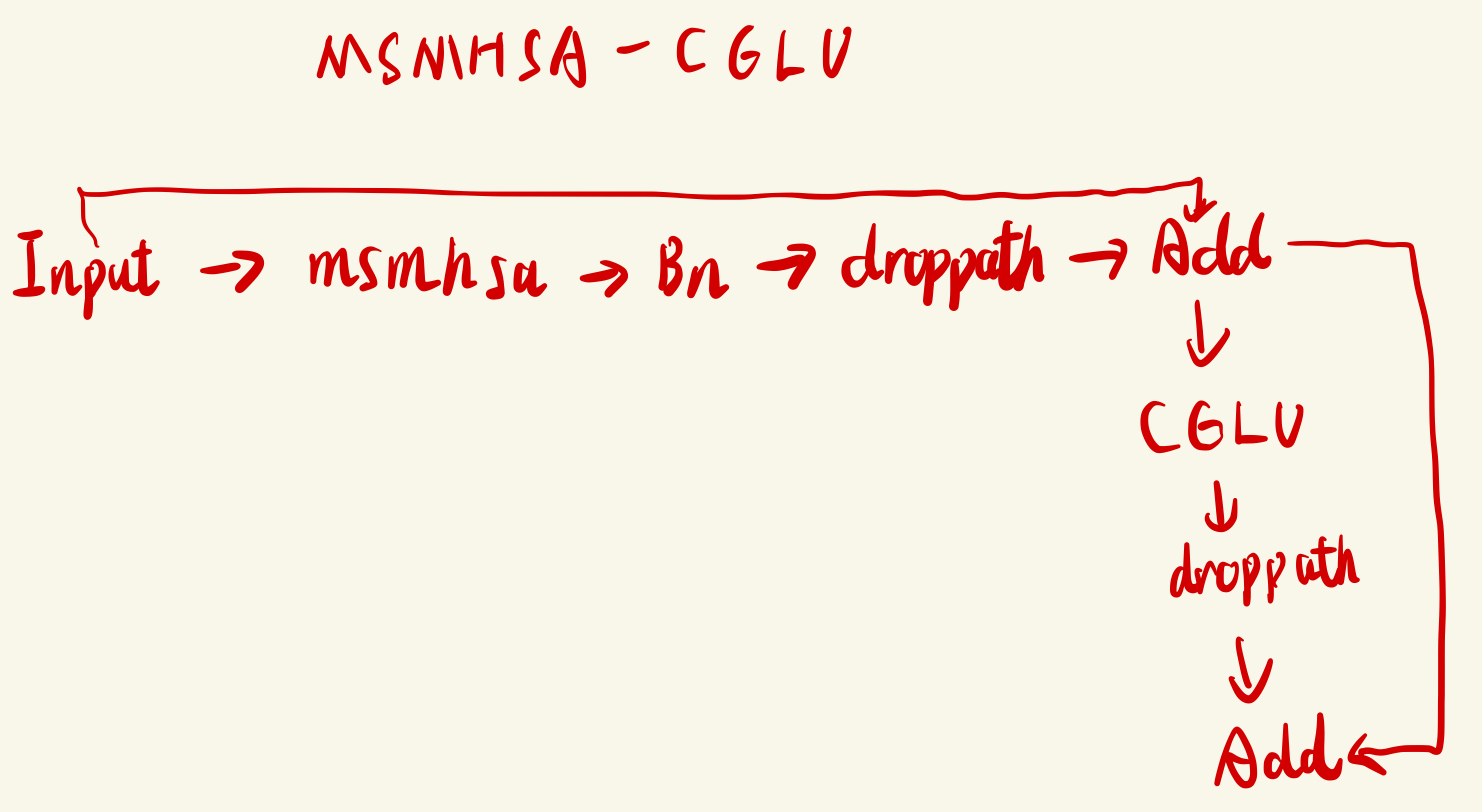 MSMHSA - CGLU
Input → msmhsa → Bn → droppath → Add
CGLU
droppath
Add